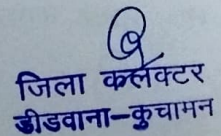 जिला कलेक्टर
डीडवाना-कुचामन